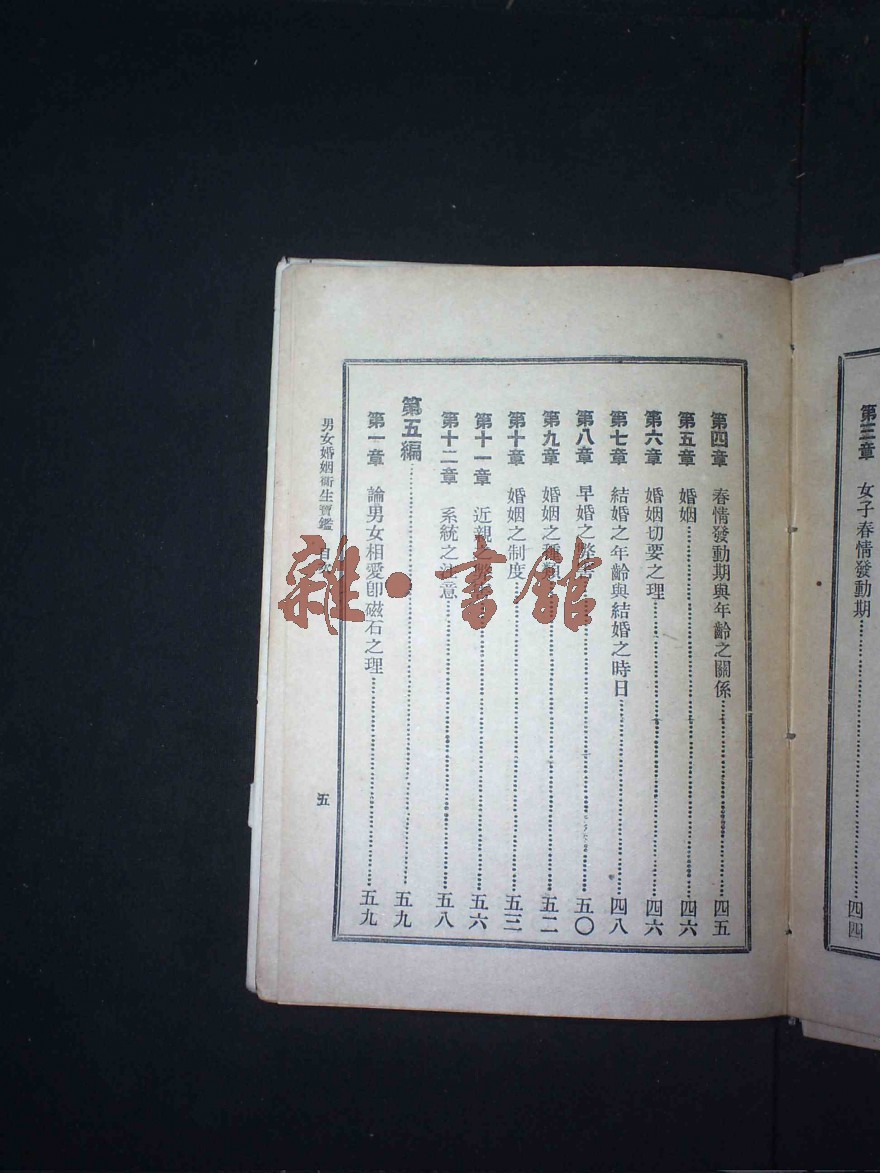 第三章 女子春情發動期……四四
第四章 春情發動期與年齡之關係……四五
第五章 婚姻……四六
第六章 婚姻切要之理……四六
第七章 結婚之年齡與結婚之時日……四八
第八章 早婚之弊害……五〇
第九章 婚姻之種類……五二
第十章 婚姻之制度……五三
第十一章 近親之……五六
第十二章 系統之注意……五八
第五編……五九
第一章 論男女相愛卽磁石之理……五九
男女婚姻衞生寶鑑 目次 五
雜·書館